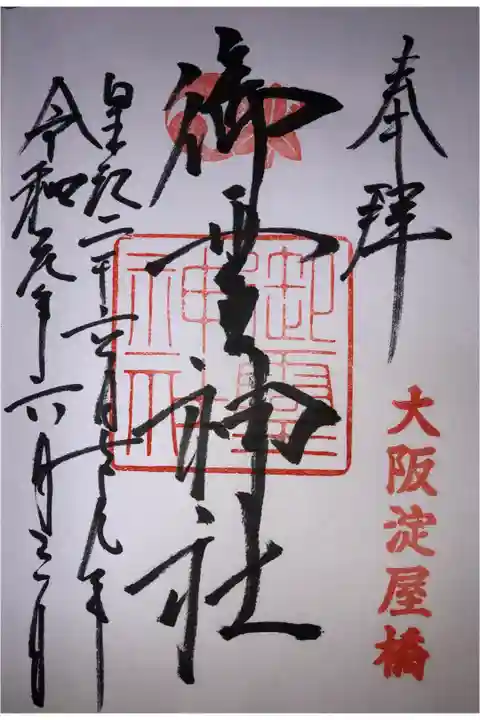 奉拝
大阪淀屋橋
御霊神社
御靈
神社
皇紀二千六百七十九年
令和元年六月三日